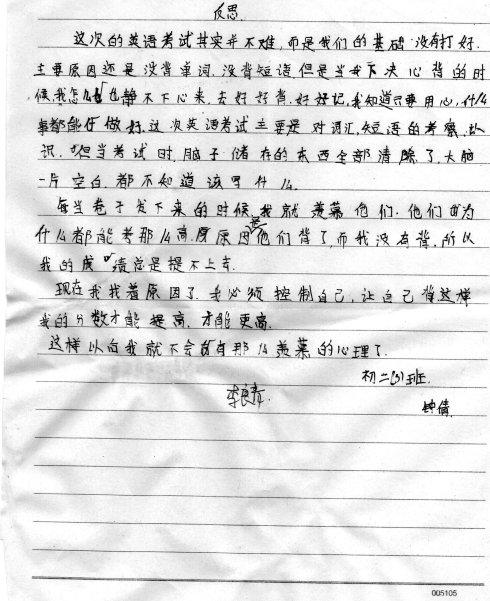 反思
这次的英语考试其实并不难,而是我们的基础没有打好.
主要原因还是没背单词,没背短语但是当我下决心背的时
候,我怎么也静不下心来,去好好背,好好记,我知道只要用心,什么
事都能做好.这次英语考试主要是对词汇,短语的考察,认
识.但当考试时,脑子储存的东西全部清除了,大脑
一片空白.都不知道该写什么.
每当卷子发下来的时候,我就羡慕他们.他们为
什么都能考那么高.原因是他们背了,而我没有背,所以
我的成绩总是提不上去.
现在我找着原因了.我必须控制自己,让自己背这样
我的分数才能提高.才能更高.
这样以后我就不会有那么羡慕的心理了.
初二(3)班.
钟倩
005105